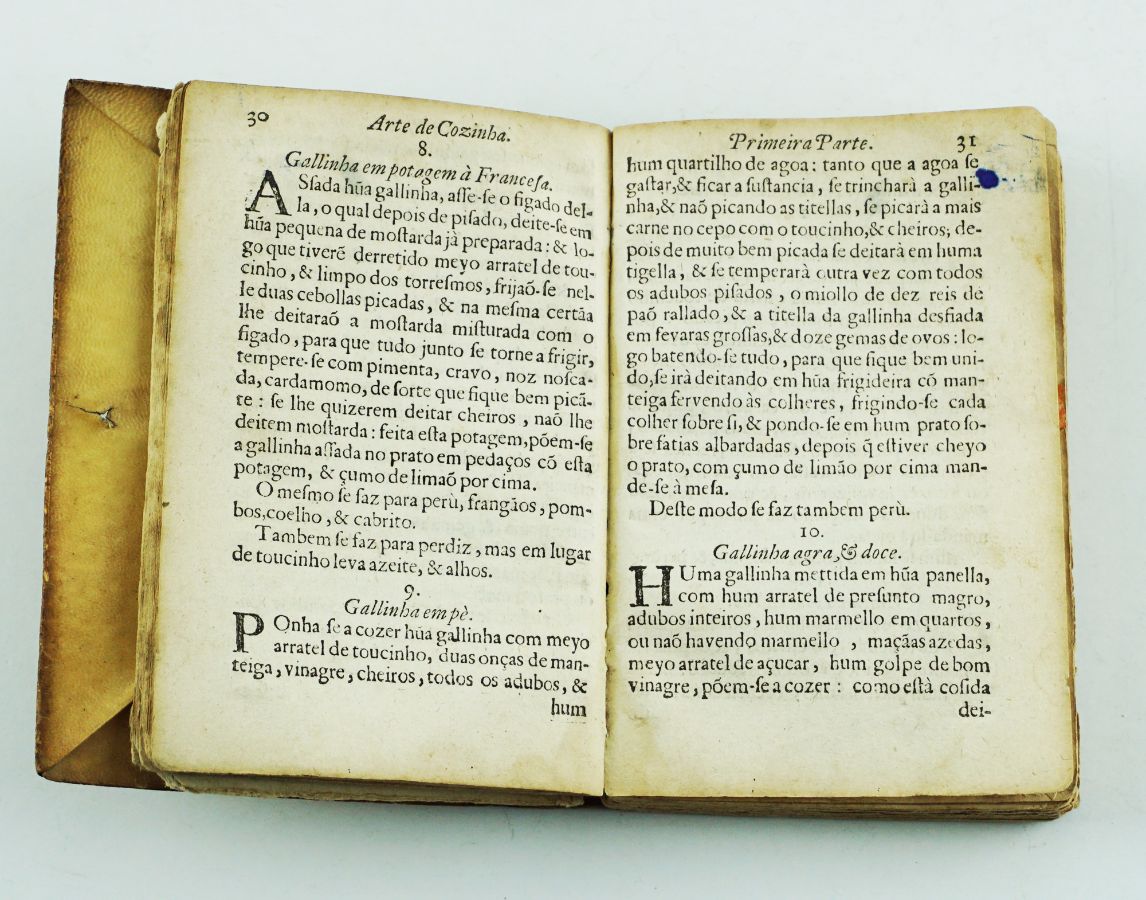 30
Arte de Cozinha.
8.
Gallinha em potagem à Franceſa.
ASſada hũa gallinha, aſſe-ſe o figado del-
la, o qual depois de piſado, deite-ſe em
hũa pequena de moſtarda jà preparada: & lo-
go que tiverẽ derretido meyo arratel de tou-
cinho, & limpo dos torreſmos, frijaõ-ſe nel-
le duas cebollas picadas, & na meſma certãa
lhe deitaraõ a moſtarda miſturada com o
figado, para que tudo junto ſe torne a frigir,
tempere-ſe com pimenta, cravo, noz noſca-
da, cardamomo, de ſorte que fique bem picã-
te: ſe lhe quizerem deitar cheiros, naõ lhe
deitem moſtarda: feita eſta potagem, põem-ſe
a gallinha aſſada no prato em pedaços cõ eſta
potagem, & çumo de limaõ por cima.
O meſmo ſe faz para perù, frangãos, pom-
bos, coelho, & cabrito.
Tambem ſe faz para perdiz, mas em lugar
de toucinho leva azeite, & alhos.
9.
Gallinha em pè.
POnha ſe a cozer hũa gallinha com meyo
arratel de toucinho, duas onças de man-
teiga, vinagre, cheiros, todos os adubos, &
hum
Primeira Parte.
31
hum quartilho de agoa: tanto que a agoa ſe
gaſtar, & ficar a ſuſtancia, ſe trincharà a galli-
nha, & naõ picando as titellas, ſe picarà a mais
carne no cepo com o toucinho, & cheiros; de-
pois de muito bem picada ſe deitarà em huma
tigella, & ſe temperarà outra vez com todos
os adubos piſados, o miollo de dez reis de
paõ rallado, & a titella da gallinha desfiada
em fevaras groſſas, & doze gemas de ovos: lo-
go batendo-ſe tudo, para que fique bem uni-
do, ſe irà deitando em hũa frigideira cõ man-
teiga fervendo às colheres, frigindo-ſe cada
colher ſobre ſi, & pondo-ſe em hum prato ſo-
bre fatias albardadas, depois q̃ eſtiver cheyo
o prato, com çumo de limão por cima man-
de-ſe à meſa.
Deſte modo ſe faz tambem perù.
10.
Gallinha agra, & doce.
HUma gallinha mettida em hũa panella,
com hum arratel de preſunto magro,
adubos inteiros, hum marmello em quartos,
ou naõ havendo marmello, maçãas azedas,
meyo arratel de açucar, hum golpe de bom
vinagre, põem-ſe a cozer: como eſtà coſida
dei-